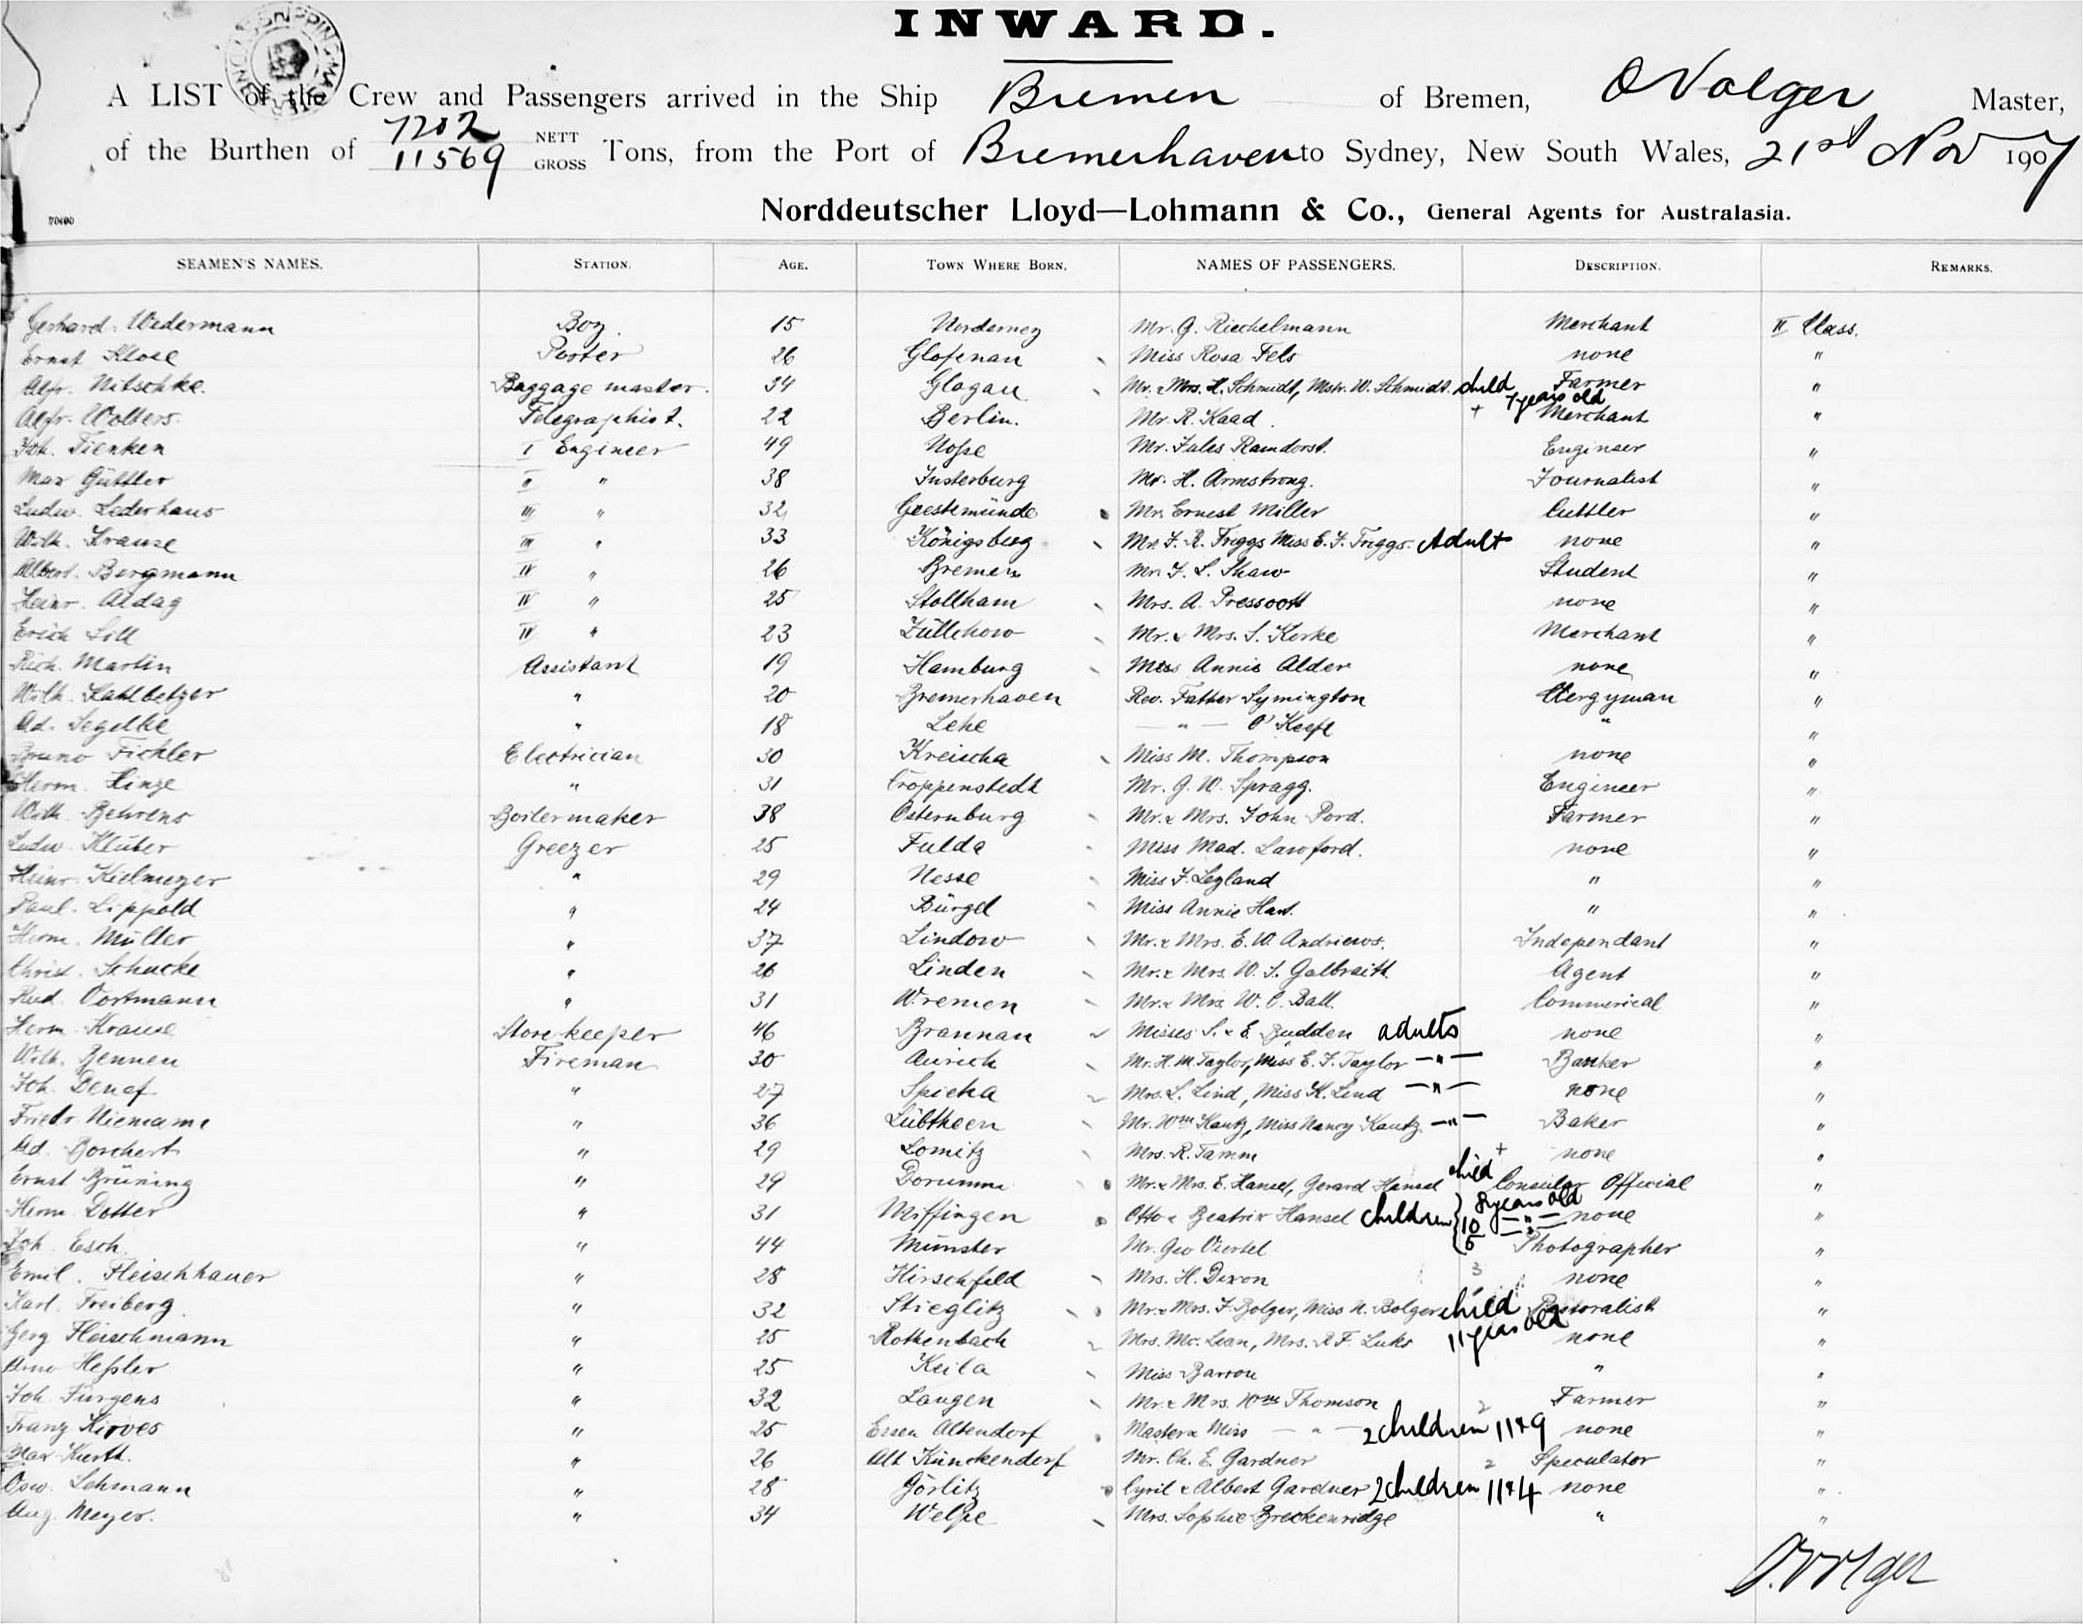 INWARD.
A LIST of the Crew and Passengers arrived in the Ship Bremen of Bremen, O Volger Master,
of the Burthen of 7202 NETT 11569 GROSS Tons, from the Port of Bremerhaven to Sydney, New South Wales, 21st Nov 1907
Norddeutscher Lloyd—Lohmann & Co., General Agents for Australasia.
70490
SEAMEN'S NAMES. STATION. AGE. TOWN WHERE BORN. NAMES OF PASSENGERS. DESCRIPTION. REMARKS.
Gerhard Wedermann Boy. 15 Norderney Mr. G. Riechelmann Merchant II Class.
Ernst Klose Porter 26 Miss Rosa Fels none "
Alfr. Nitschke. Baggage master. 34 Glogau Mr. & Mrs. H. Schmidt, Mstr. W. Schmidt child 7 years old Farmer "
Alfr. Wolters. Telegraphist. 22 Berlin. Mr. R. Kaad. + Merchant "
Joh. Tienken I Engineer 49 Noße Mr. Jules Ramdorst. Engineer "
Max Güttler II " 38 Insterburg Mr. H. Armstrong. Journalist "
Ludw. Lederhaus III " 32 Geestemünde Mr. Ernest Miller Cuttler "
Wilh. Krause III " 33 Königsberg Mr. F. R. Triggs Miss E. F. Triggs. Adult none "
Albert. Bergmann IV " 26 Bremen Mr. F. L. Shaw Student "
Heinr. Aldag IV " 25 Stollham Mrs. A. Presscott none "
Erich Loll IV " 23 Züllchow Mr. & Mrs. S. Korke Merchant "
Rich. Martin Assistant 19 Hamburg Miss Annie Alder none "
Wilh. Kahlbetzer " 20 Bremerhaven Rev. Father Symington Clergyman "
Ad. Segelke " 18 Lehe — " — O'Keefe " "
Bruno Fichler Electrician 30 Kreischa Miss M. Thompson none "
Herm. Hinze " 31 Croppenstedt Mr. G. W. Spragg. Engineer "
Wilh. Behrens Boilermaker 38 Osternburg Mr. & Mrs. John Pord. Farmer "
Ludw. Klüber Greezer 25 Fulda Miss Mad. Lawford. none "
Heinr. Kielmeyer " 29 Nesse Miss F. Leyland " "
Paul. Lippold " 24 Bürgel Miss Annie Hart. " "
Herm. Müller " 37 Lindow Mr. & Mrs. E. W. Andriews. Independant "
Christ. Schucke " 26 Linden Mr. & Mrs. W. S. Galbraith Agent "
Rud. Oortmann " 31 Wremen Mr. & Mrs. W. C. Ball. Commerical "
Herm. Krause Storekeeper 46 Brannau Misses S. & E. Budden adults none "
Wilh. Bennen Fireman 30 Aurich Mr. H. M. Taylor, Miss E. F. Taylor — " — Banker "
Joh. Denef " 27 Spieka Mrs. L. Lind, Miss K. Lind — " — none "
Friedr. Niemann " 36 Lübtheen Mr. Wm Kautz, Miss Nancy Kautz — " — Baker "
Ad. Borchert " 29 Lomitz Mrs. R. Tamm + none "
Ernst Brüning " 29 Dorumm Mr. & Mrs. E. Hansel, Gerard Hansel child Consular Official "
Herm. Dotter " 31 Miffingen Otto & Beatrix Hansel children 8 years old 10 — " — 6 — " — none "
Joh. Esch. " 44 Münster Mr. Geo Viertel Photographer "
Emil. Fleischhauer " 28 Hirschfeld Mrs. H. Dixon 3 none "
Karl. Freiberg. " 32 Stieglitz Mr. & Mrs. F. Bolger, Miss N. Bolger child 11 years old Pastoralist "
Gerg Fleischmann " 25 Rothenbach Mrs. Mc. Lean, Mrs. R F. Luks none "
Arno Heßler " 25 Keila Miss Barron " "
Joh. Jürgens " 32 Langen Mr. & Mrs. Wm Thomson 2 Farmer "
Franz Kirves " 25 Essen Altendorf Master & Miss — " — 2 children 11 & 9 none "
Max Kurth. " 26 Alt Künckendorf Mr. Ch. E. Gardner 2 Speculator "
Osw. Lehmann " 28 Görlitz Cyril & Albert Gardner 2 children 11 & 4 none "
Aug. Meyer. " 34 Welpe Mrs. Sophie Breckenridge " "
O. Volger